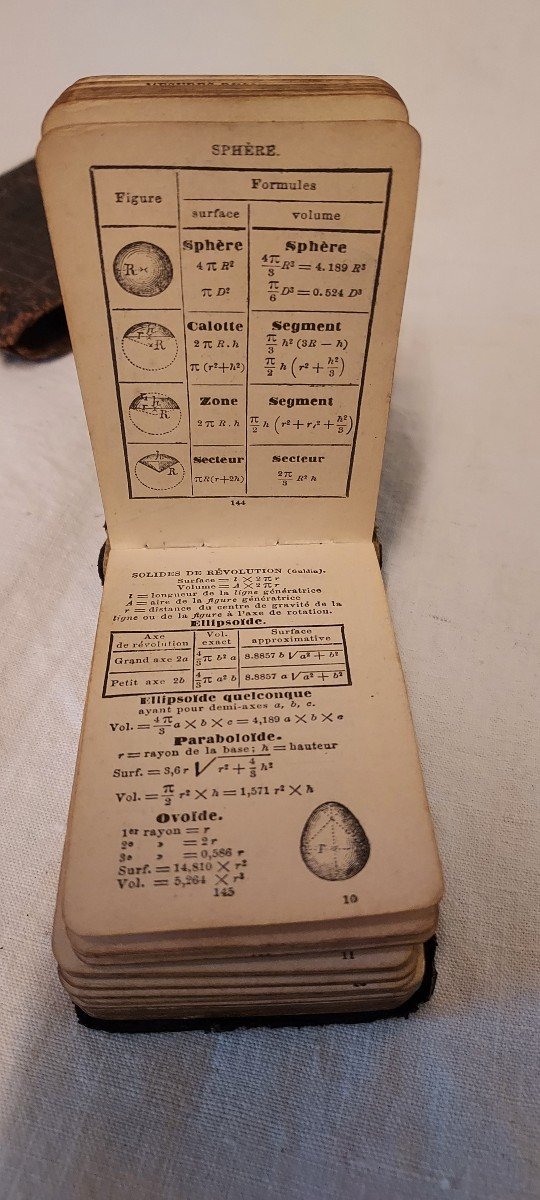 SPHÈRE.
Figure
Formules
surface
volume
R
Sphère
4 π R²
π D²
Sphère
4π/3 R³ = 4.189 R³
π/6 D³ = 0.524 D³
h
r
R
Calotte
2 π R.h
π (r²+h²)
Segment
π/3 h² (3R − h)
π/2 h (r² + h²/3)
h
r
R
Zone
2 π R.h
Segment
π/2 h (r² + r,² + h²/3)
h
R
Secteur
π R(r+2h)
Secteur
2π/3 R² h
144
SOLIDES DE RÉVOLUTION (Guldin).
Surface = l × 2 π r
Volume = A × 2 π r
l = longueur de la ligne génératrice
A = aire de la figure génératrice
r = distance du centre de gravité de la
ligne ou de la figure à l'axe de rotation.
Ellipsoïde.
Axe
de révolution
Vol.
exact
Surface
approximative
Grand axe 2a
4/3 π b² a
8.8857 b √a² + b²
Petit axe 2b
4/3 π a² b
8.8857 a √a² + b²
Ellipsoïde quelconque
ayant pour demi-axes a, b, c.
Vol. = 4π/3 a × b × c = 4,189 a × b × c
Paraboloïde.
r = rayon de la base; h = hauteur
Surf. = 3,6 r √r² + 4/3 h²
Vol. = π/2 r² × h = 1,571 r² × h
Ovoïde.
1er rayon = r
2e » = 2 r
3e » = 0,586 r
Surf. = 14,810 × r²
Vol. = 5,264 × r³
r
145
10
11